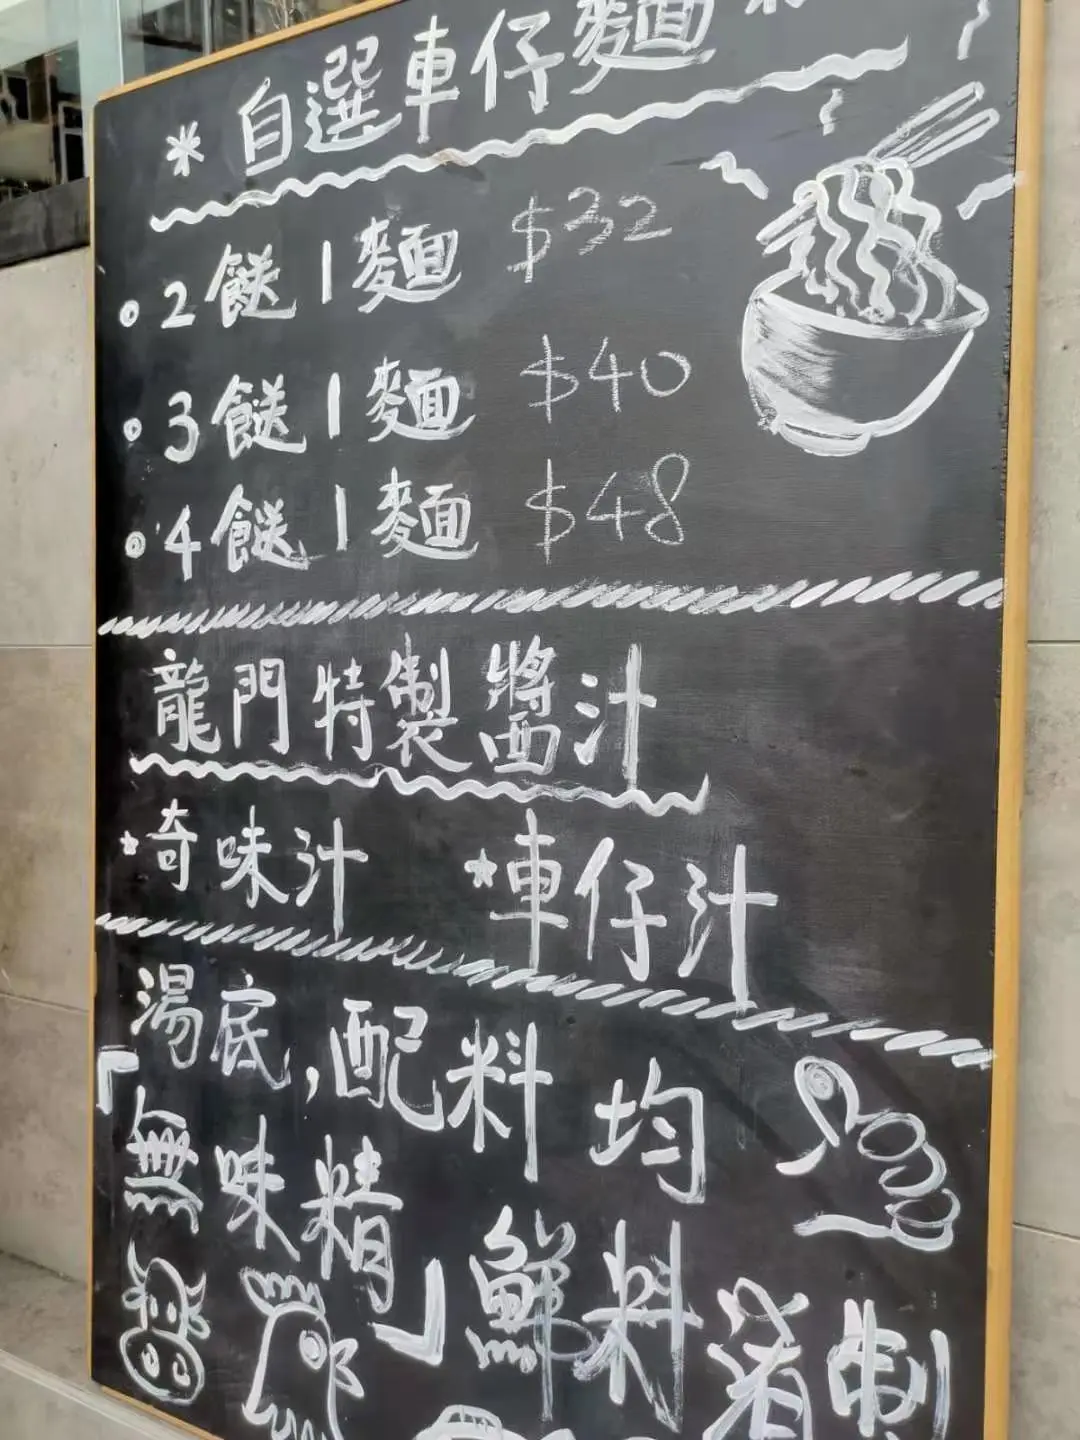 * 自選車仔麵 *
2餸1麵 $32
3餸1麵 $40
4餸1麵 $48
龍門特製醬汁
奇味汁 車仔汁
湯底，配料均
「無味精」鮮料
製